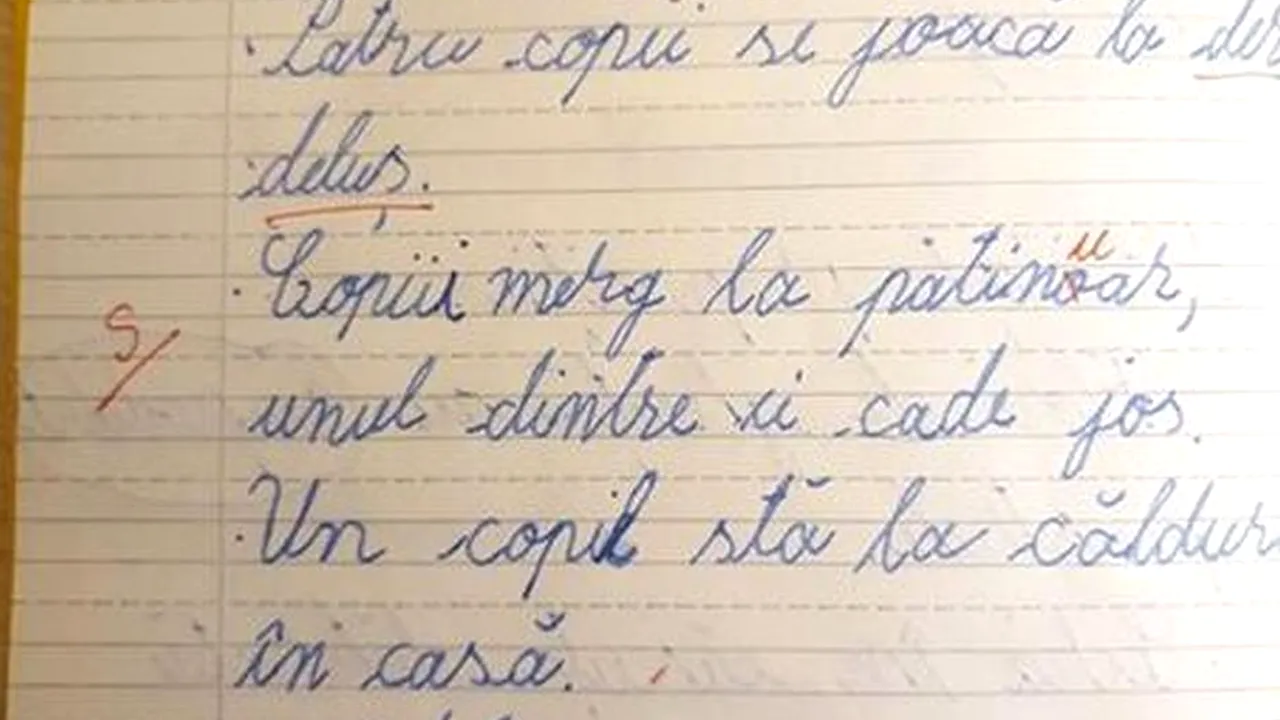 Patru copii se joacă la der
deluș.
Copiii merg la patinoar,
unul dintre ei cade jos.
Un copil stă la căldur
în casă.